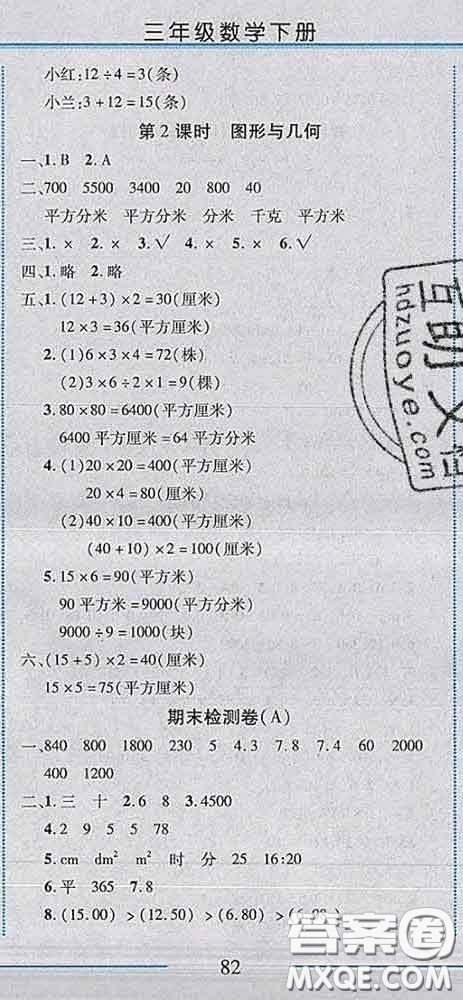 三年级数学下册
小红:12÷4=3(条)
小兰:3+12=15(条)
第2课时 图形与几何
一、1.B 2.A
二、700 5500 3400 20 800 40
平方分米 平方分米 分米 千克 平方千米
三、1.× 2.× 3.√ 4.× 5.× 6.√
四、1.略 2.略
五、1.(12+3)×2=30(厘米)
12×3=36(平方厘米)
2.(1)6×3×4=72(株)
(2)3×6÷2×1=9(棵)
3.80×80=6400(平方厘米)
6400平方厘米=64平方分米
4.(1)20×20=400(平方厘米)
20×4=80(厘米)
(2)40×10=400(平方厘米)
(40+10)×2=100(厘米)
5.15×6=90(平方米)
90平方米=9000(平方分米)
9000÷9=1000(块)
六、(15+5)×2=40(厘米)
15×5=75(平方厘米)
期末检测卷(A)
一、840 800 1800 230 5 4.3 7.8 7.4 60 2000
400 1200
二、1.三 十 2.6 8 3.4500
4.2 9 5 5 78
5.cm dm² m² 时 分 25 16:20
6.平 365 7.8
8.(15.00)>(12.50)>(6.80)>(6.
82
hdzuoye.com
互助
答案圈
MXQE.COM